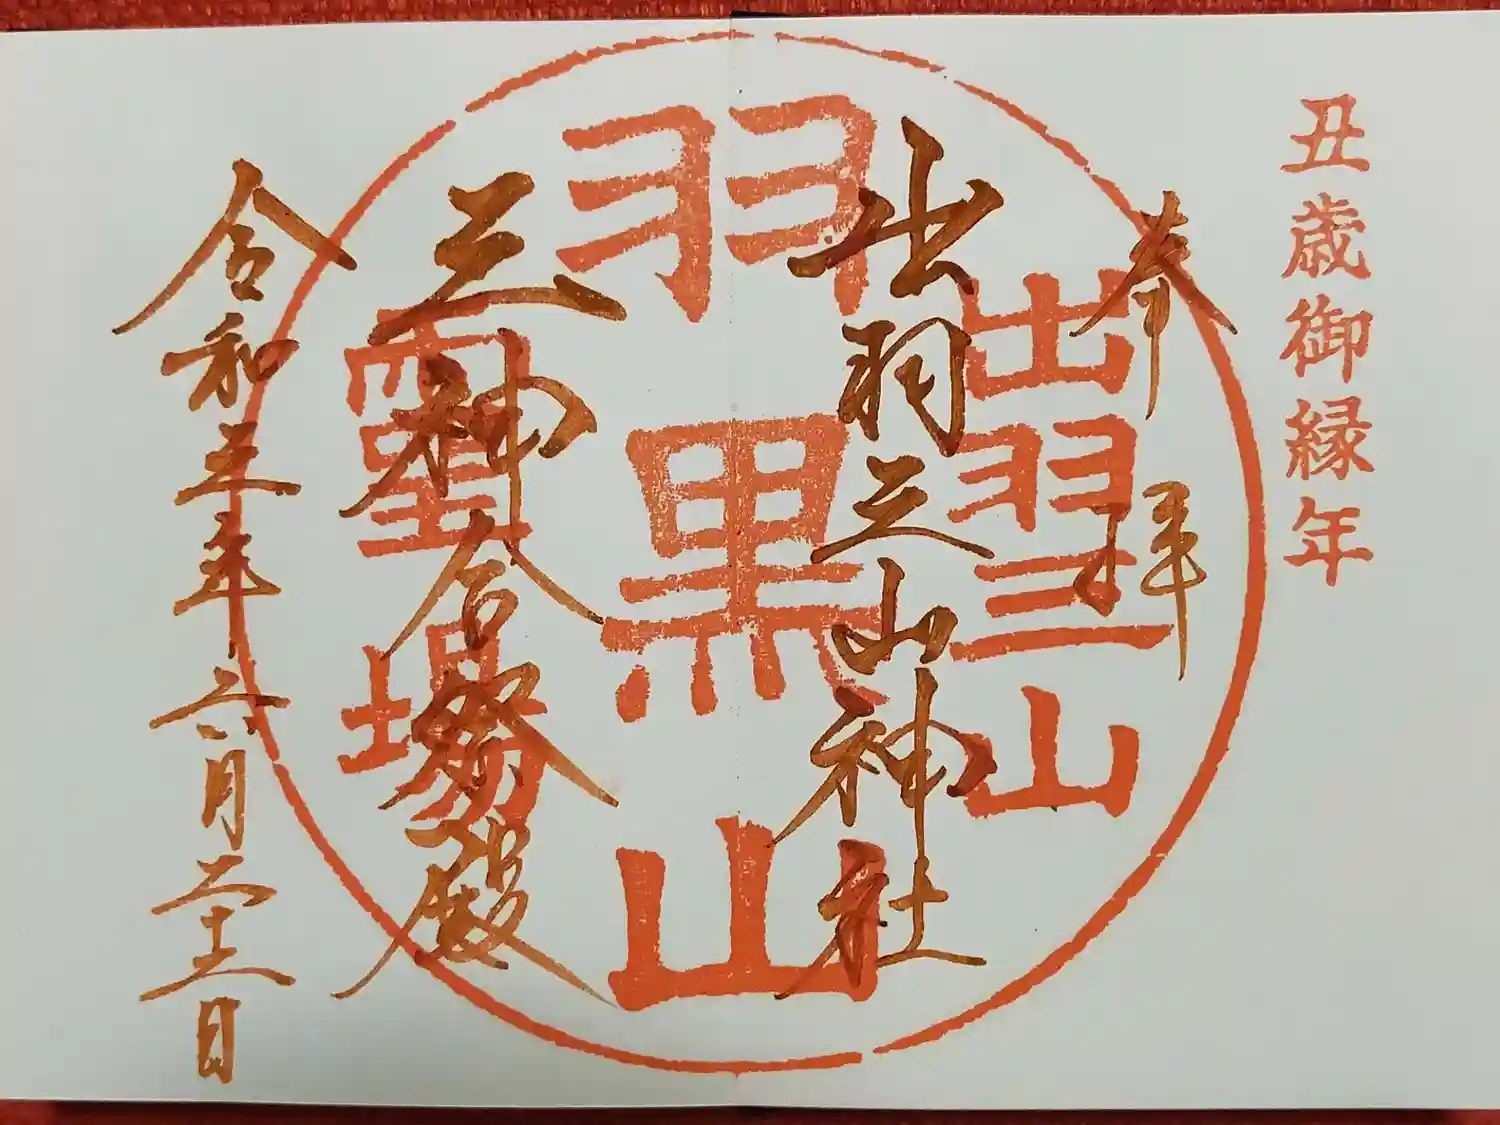 丑歳御縁年
奉拝
出羽三山
出羽三山神社
羽黒山
三神合祭殿
霊場
令和三年六月二十二日